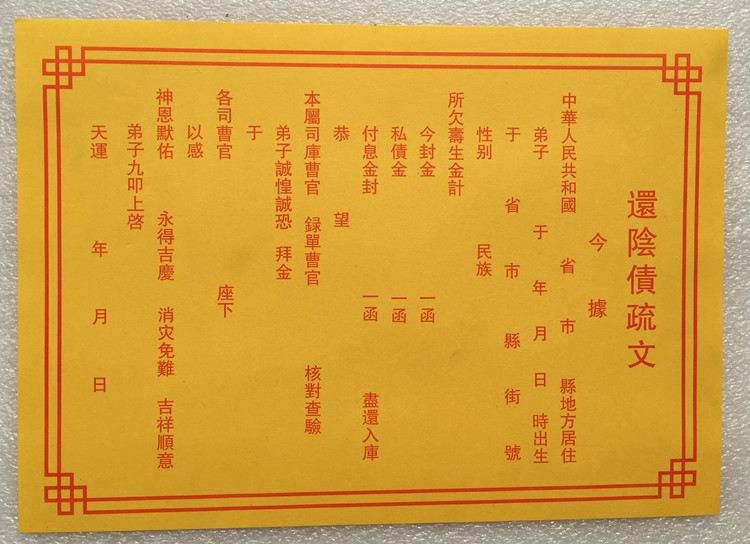 還陰債疏文
今據
中華人民共和國 省 市 縣地方居住
弟子 于 年 月 日 時出生
于 省 市 縣 街 號
性别 民族
所欠壽生金計
今封金 一函
私債金 一函
付息金封 一函 盡還入庫
恭望
本屬司庫曹官 録單曹官 核對查驗
弟子誠惶誠恐 拜金
于
各司曹官 座下
以感
神恩默佑 永得吉慶 消灾免難 吉祥順意
弟子九叩上啓
天運 年 月 日